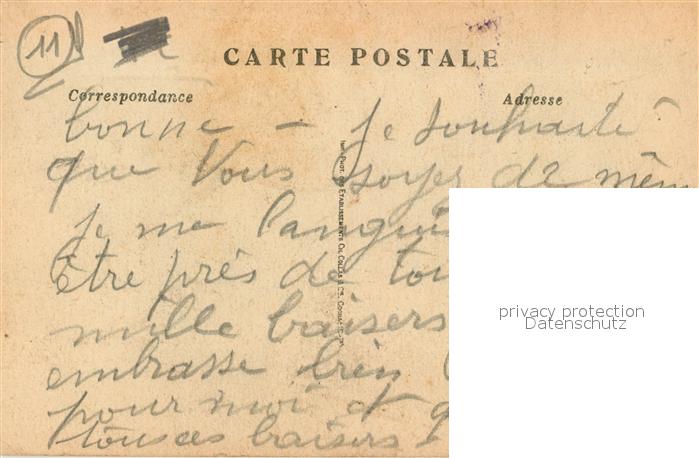 11
CARTE POSTALE
Correspondance
Adresse
bonne - je souhaite
que Vous soyez de mêm
je me languis
être près de tou
mille baisers
embrasse bien
pour moi et q
tous ces baisers
IMP. PHOT. DES ETABLISSEMENTS CH. COLLAS & Cie, COGNAC
privacy protection
Datenschutz